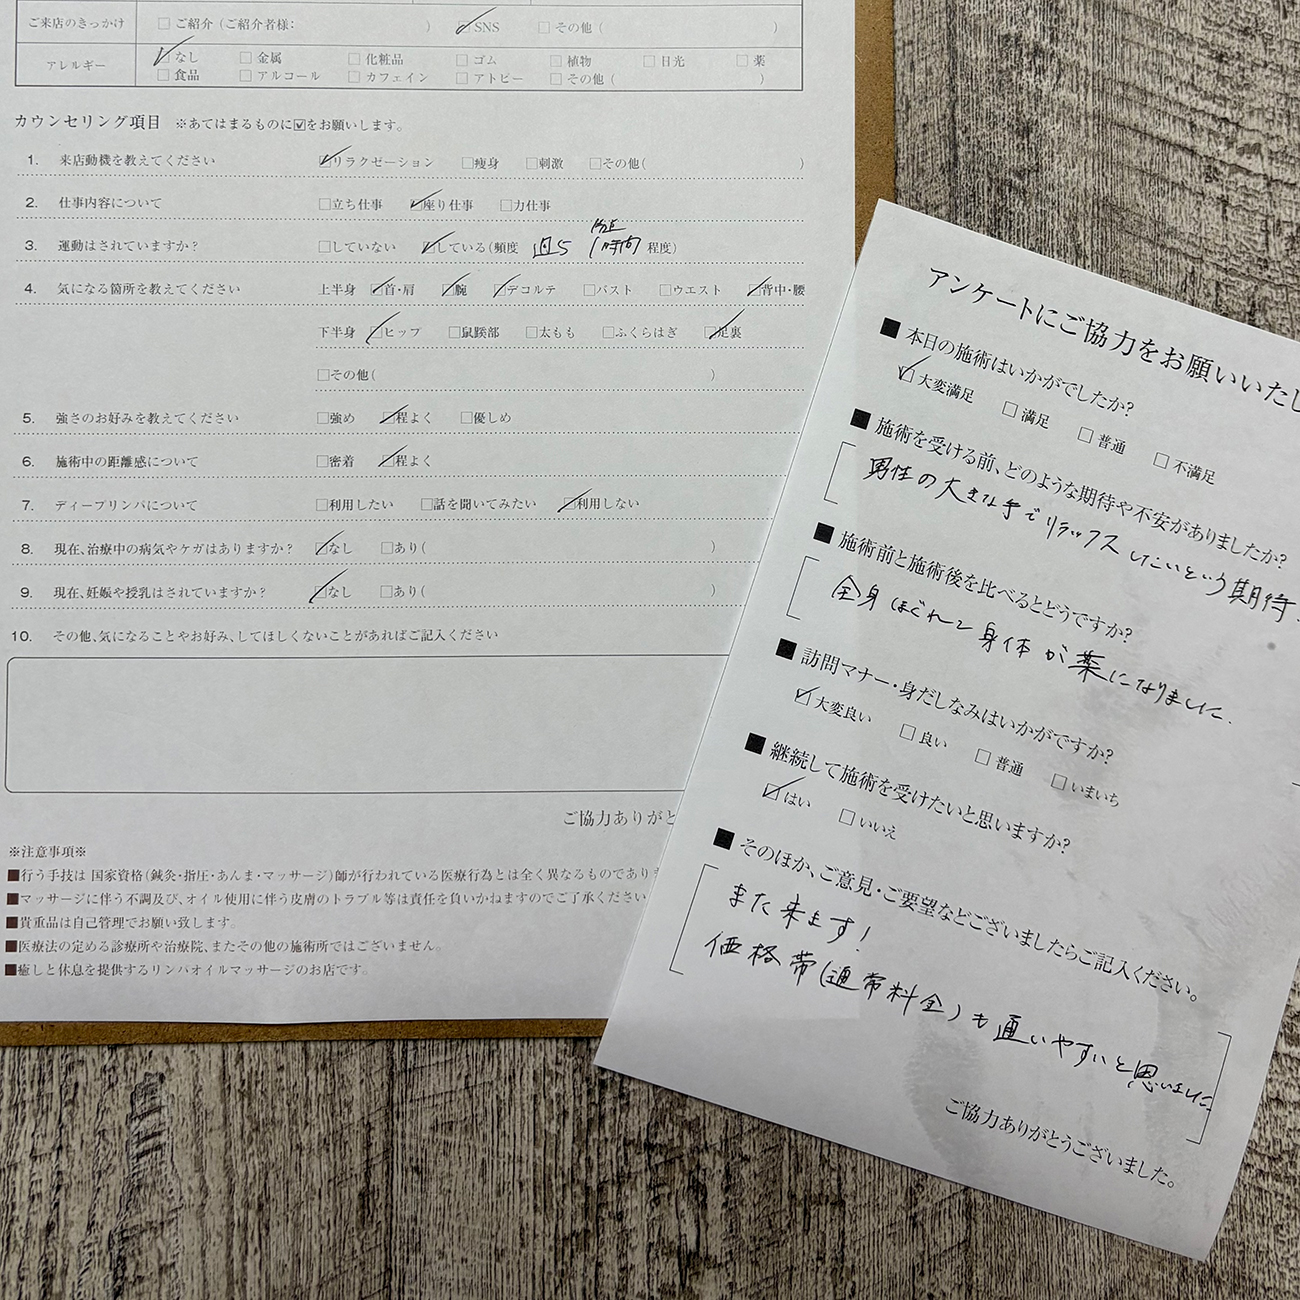 ご来店のきっかけ □ご紹介（ご紹介者様： ） ☑SNS □その他（ ）
アレルギー ☑なし □金属 □化粧品 □ゴム □植物 □日光 □薬
□食品 □アルコール □カフェイン □アトピー □その他（ ）
カウンセリング項目 ※あてはまるものに☑をお願いします。
1. 来店動機を教えてください ☑リラクゼーション □痩身 □刺激 □その他（ ）
2. 仕事内容について □立ち仕事 ☑座り仕事 □力仕事
3. 運動はされていますか？ □していない ☑している（頻度 週5 1時間 程度）
4. 気になる箇所を教えてください 上半身 ☑首・肩 ☑腕 ☑デコルテ □バスト □ウエスト ☑背中・腰
下半身 ☑ヒップ □鼠蹊部 □太もも □ふくらはぎ ☑足裏
□その他（ ）
5. 強さのお好みを教えてください □強め ☑程よく □優しめ
6. 施術中の距離感について □密着 ☑程よく
7. ディープリンパについて □利用したい □話を聞いてみたい ☑利用しない
8. 現在、治療中の病気やケガはありますか？ ☑なし □あり（ ）
9. 現在、妊娠や授乳はされていますか？ ☑なし □あり（ ）
10. その他、気になることやお好み、してほしくないことがあればご記入ください
ご協力ありがと
※注意事項※
■行う手技は 国家資格（鍼灸・指圧・あんま・マッサージ）師が行われている医療行為とは全く異なるものであり
■マッサージに伴う不調及び、オイル使用に伴う皮膚のトラブル等は責任を負いかねますのでご了承ください
■貴重品は自己管理でお願い致します。
■医療法の定める診療所や治療院、またその他の施術所ではございません。
■癒しと休息を提供するリンパオイルマッサージのお店です。
アンケートにご協力をお願いいたし
■ 本日の施術はいかがでしたか？
☑大変満足 □満足 □普通 □不満足
■ 施術を受ける前、どのような期待や不安がありましたか？
男性の大きな手でリラックスしたいという期待
■ 施術前と施術後を比べるとどうですか？
全身ほぐれて身体が楽になりました.
■ 訪問マナー・身だしなみはいかがですか？
☑大変良い □良い □普通 □いまいち
■ 継続して施術を受けたいと思いますか？
☑はい □いいえ
■ そのほか、ご意見・ご要望などございましたらご記入ください。
また来ます！
価格帯（通常料金）も通いやすいと思いました
ご協力ありがとうございました。